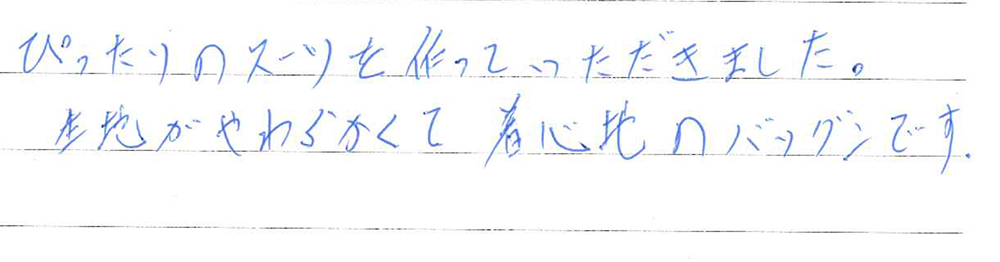 ぴったりのスーツを作っていただきました。
生地がやわらかくて着心地のバッグンです.